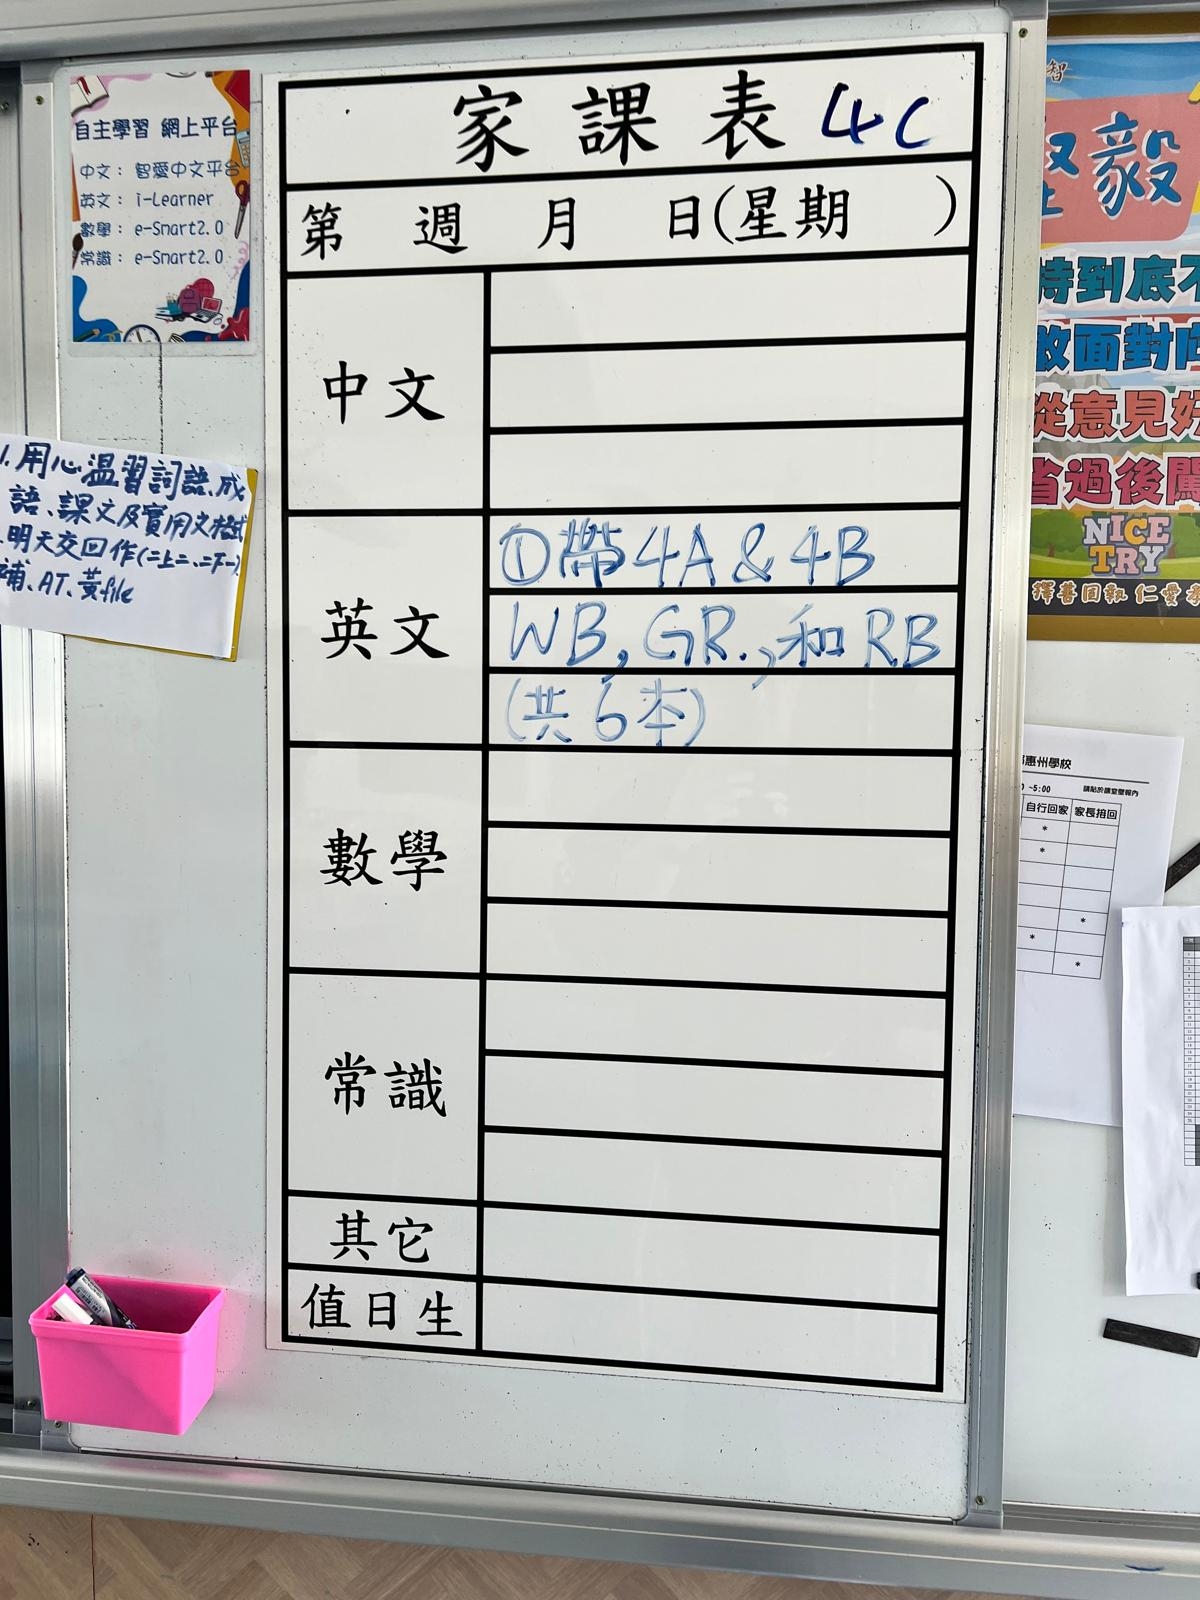 自主學習 網上平台
中文： 智愛中文平台
英文： i-Learner
數學： e-Smart2.0
常識： e-Smart2.0
1. 用心溫習詞語、成
語、課文及實用文格式
明天交回作(二上二、二下一)
補、AT、黃file
家課表 4C
第 週 月 日(星期 )
中文
英文
①帶4A & 4B
WB, GR., 和 RB
(共6本)
數學
常識
其它
值日生
智
毅
持到底不
敢面對
從意見好
省過後闖
NICE
TRY
擇善固執 仁愛
惠州學校
~5:00
請貼於課室壁報內
自行回家 家長接回
*
*
*
*
*